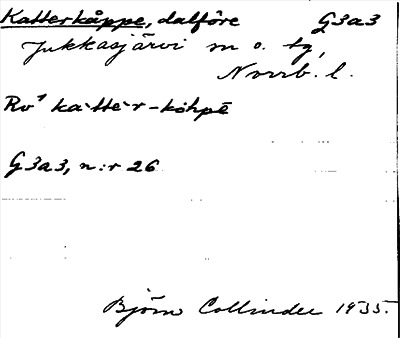 Katterkåppe, dalföre G3a3
Jukkasjärvi sn o. tg,
Norrb. l.
Rv¹ ka·tte·r-kåhpē
G3a3, n:r 26
Björn Collinder 1935.